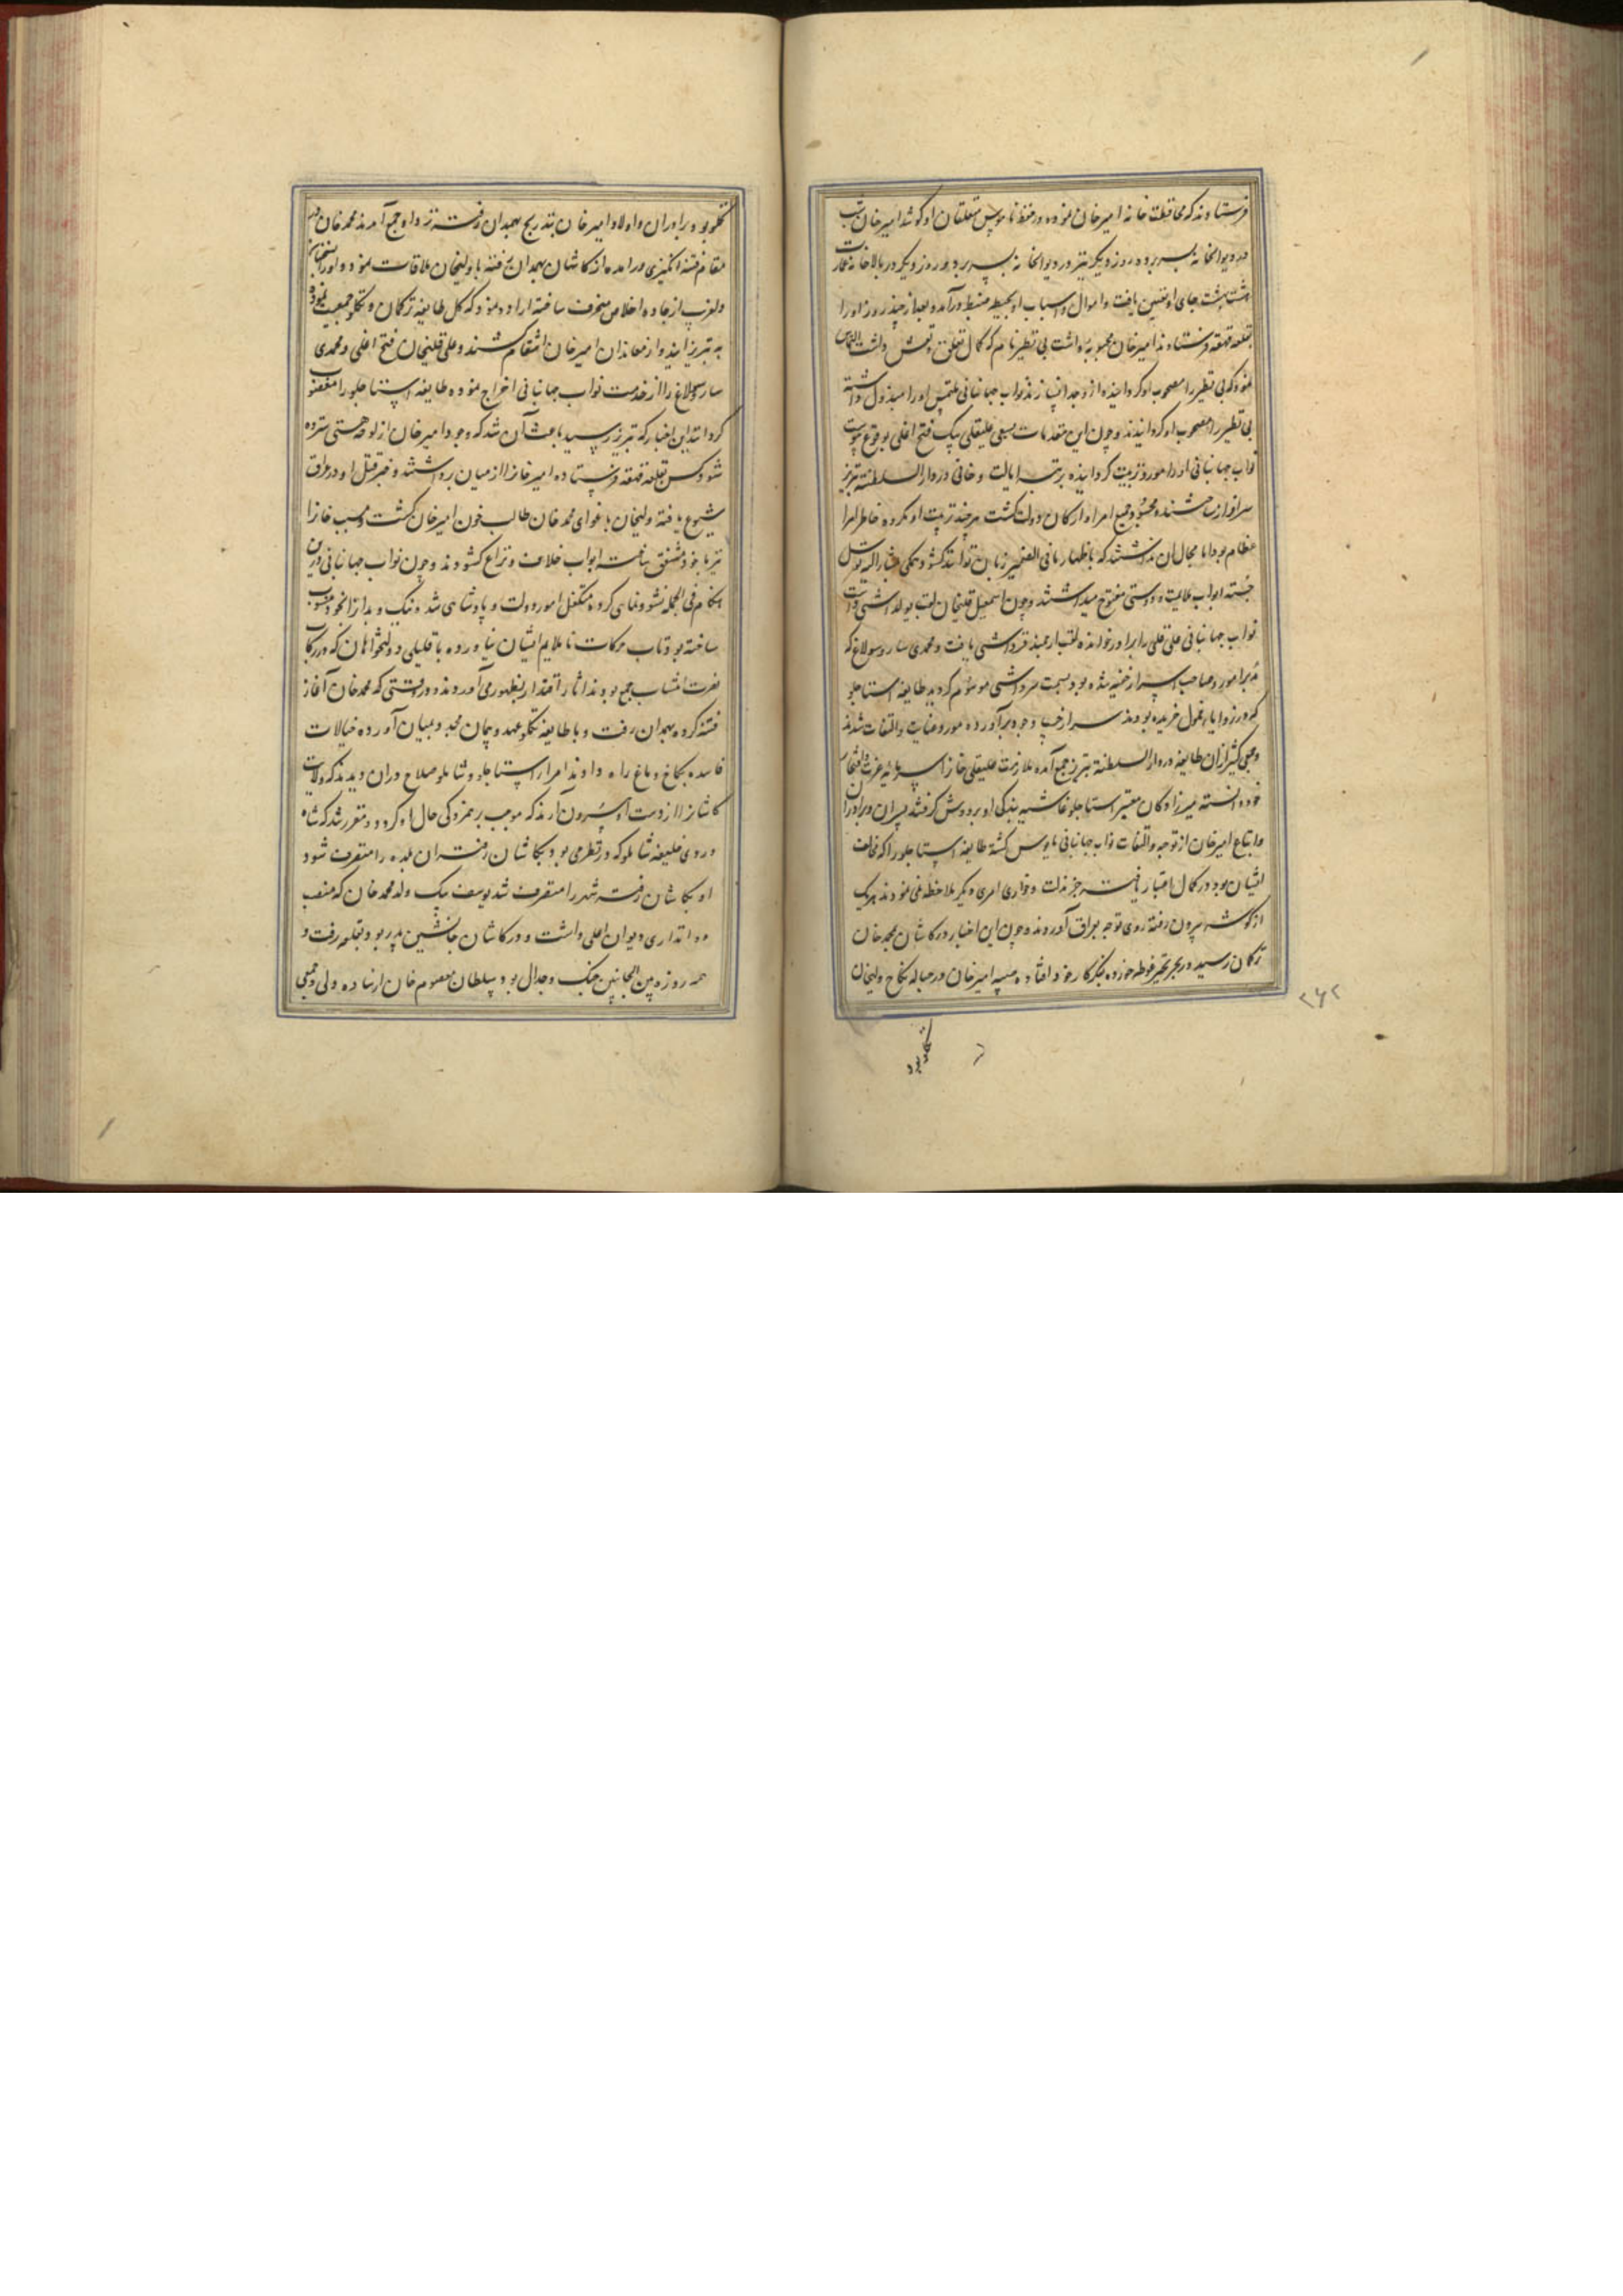 فرستادند که محافظت خانه امیرخان نموده در حفظ ناموس متعلقان او کوشد امیرخان شب
در دیوانخانه بسر برده روز دیگر نیز در دیوانخانه بسر برد و روز دیگر در بالاخانه عمارت
هشت بهشت جای او تعیین یافت و اموال و اسباب او بحیطه ضبط درآمد و بعد از چند روز او را
بقلعه قهقهه فرستادند امیرخان محبوبه داشت بی نظیر نام که کمال تعلق و تعشق داشت التماس
نمود که بی نظیر را مصحوب او گردانیده از وجدا نسازند نواب جهانبانی ملتمس او را مبذول داشته
بی نظیر را مصحوب او گردانیدند و چون این مقدمات بسعی علیقلی بیک فتح اغلی بوقوع پیوست
نواب جهانبانی او را مورد تربیت گردانیده برتبه ایالت و خانی در دار السلطنه تبریز
سرافراز ساختند و جمیع امرا و ارکان دولت گشت هرچند تربیت او مکروه خاطر امرا
عظام بود اما مجال آن نداشتند که باظهار ما فی الضمیر زبان توانند گشود همگی بمشار الیه توسل
جسته ابواب ملایمت و دوستی مفتوح میداشتند و چون اسمعیل قلیخان لقب یولداشی داشت
نواب جهانبانی علی قلی را برادر خوانده لقب ارجمند قرداشی یافت و محمدی سارو سولاغ که
مدبر امور و صاحب اسرار خفیه شده بود بسمت سرداشی موسوم گردید طایفه استاجلو
که در زوایای خمول خزیده بودند سر از جیب وجود برآورده مورد عنایت و التفات شدند
و جمعی کثیر از آن طایفه در دار السلطنه تبریز جمع آمده ملازمت علیقلی خان را سرمایه عزت و افتخار
خود دانسته میرزادگان معتبر استاجلو غاشیه بندگی او بر دوش گرفتند پسران و برادران
و اتباع امیرخان از توجه و التفات نواب جهانبانی مایوس گشته طایفه استاجلو را که مخالف
ایشان بود در کمال اعتبار یافته جز مذلت و خواری امری دیگر ملاحظه نمی نمودند هر یک
از گوشه بیرون رفته روی توجه بعراق آوردند و چون این اخبار در کاشان بمحمد خان
ترکمان رسید در بحر تحیر غوطه خورده بفکر کار خود افتاده همشیره امیرخان در حباله نکاح ولیخان
تکلو بود
۲۶۲
تکلو بود و برادران و اولاد امیرخان بتدریج بهمدان رفته نزد او جمع آمدند محمد خان در
مقام فتنه انگیزی درآمده از کاشان بهمدان رفته با ولیخان ملاقات نمود و او را بسخنان
دلفریب از جاده اخلاص منحرف ساخته اراده نمود که کل طایفه ترکمان و تکلو جمعیت نموده
به تبریز آیند و از معاندان امیرخان انتقام کشند و علی قلیخان فتح اغلی و محمدی
سارو سولاغ را از خدمت نواب جهانبانی اخراج نموده طایفه استاجلو را مغضوب
گردانند این اخبار که تبریز رسید باعث آن شد که وجود امیرخان از لوحه هستی سترده
شود کس بقلعه قهقهه فرستاده امیرخان را از میان برداشتند و خبر قتل او در عراق
شیوع یافته ولیخان باغوای محمد خان طالب خون امیرخان گشت و مسیب خان را
نیز با خود متفق ساخته ابواب خلاف و نزاع گشودند و چون نواب جهانبانی درین
هنگام فی الجمله نشو و نمایی کرده متکفل امور دولت و پادشاهی شده نیک و بد را از خود منسوب
ساخته بود تاب حرکات ناملایم ایشان نیاورده با قلیلی دولتخواهان که در رکاب
نصرت انتساب جمع بودند آثار اقتدار بظهور می آوردند در وقتی که محمد خان آغاز
فتنه کرده بهمدان رفت و با طایفه تکلو عهد و پیمان مجدد بمیان آورده خیالات
فاسده بکاخ دماغ راه دادند امرا استاجلو و شاملو صلاح در آن دیدند که ولایت
کاشان را از دست او بیرون آرند که موجب برهمزدگی حال او گردد و مقرر شد که شاه
وردی خلیفه شاملو که در نظر می بود بکاشان رفته آن بلده را متصرف شود
او بکاشان رفته شهر را متصرف شد یوسف بیک ولد محمد خان که منصب
دواتداری دیوان اعلی داشت و در کاشان جانشین پدر بود بقلعه رفت و
همه روزه بین الجانبین جنگ و جدال بود سلطان معصوم خان ترخان